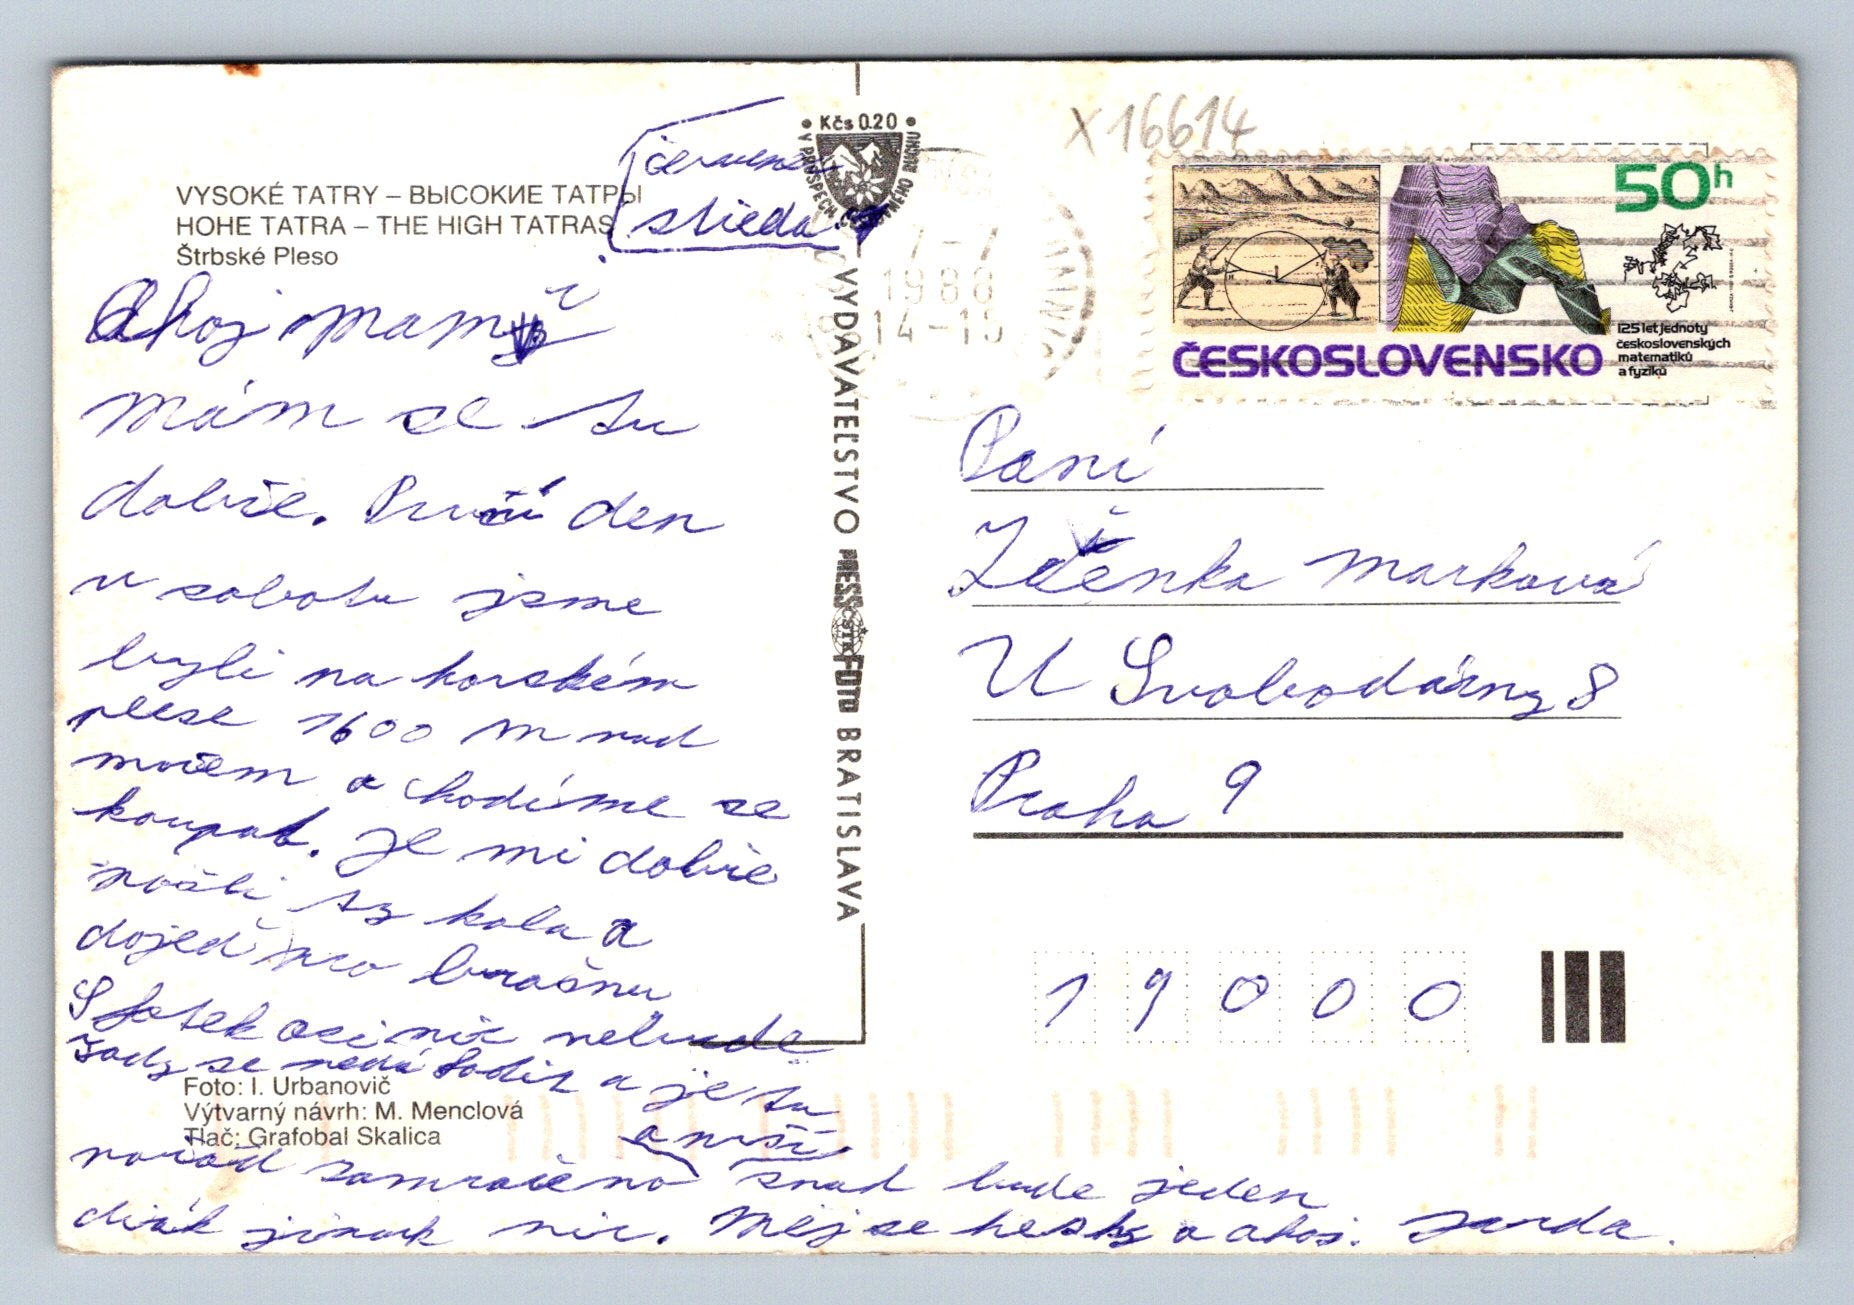 VYSOKÉ TATRY – ВЫСОКИЕ ТАТРЫ
HOHE TATRA – THE HIGH TATRAS
Štrbské Pleso
středa
Ahoj mami
mám se tu
dobře. První den
v sobotu jsme
byli na horském
plese 1600 m nad
mořem a chodíme se
koupat. Je mi dobře
pošli ty kola a
dojeď pro brašnu
S fotek asi nic nebude
tady se nedá fodit a je tu
pořád zamračeno a prší snad bude jeden
diák jinak nic. Měj se hesky a ahoj. Jarda.
Foto: I. Urbanovič
Výtvarný návrh: M. Menclová
Tlač: Grafobal Skalica
Kčs 0.20
V PROSPECH
VYDAVATEĽSTVO PRESSFOTO BRATISLAVA
ČSTK
X 16614
7–7
1988
14–15
50h
125 let jednoty
československých
matematiků
a fyziků
ČESKOSLOVENSKO
Paní
Zděnka Marková
U Svobodárny 8
Praha 9
19000